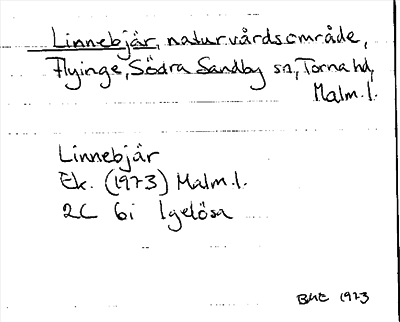 Linnebjär, naturvårdsområde,
Flyinge, Södra Sandby sn, Torna hd,
Malm.l.
Linnebjär
Ek. (1973) Malm.l.
2C 6i Igelösa
1973